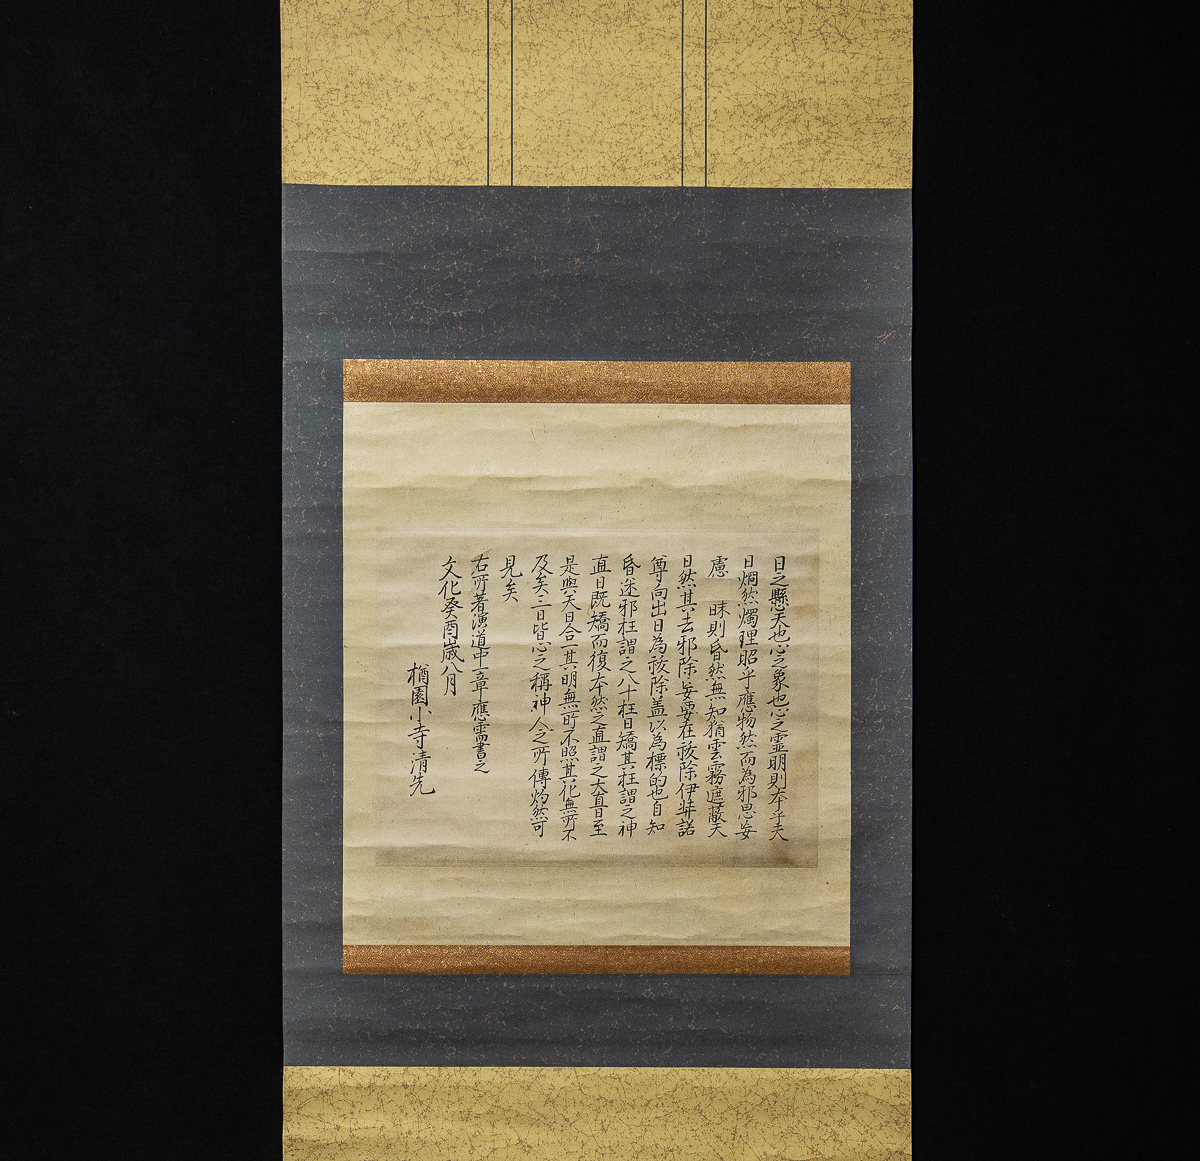 日之懸天也心之象也心之靈明則本乎天
日烱然燭理昭乎應物然而為邪思妄
慮 昧則昏然無知猶雲霧遮蔽天
日然其去邪除妄要在祓除伊弉諾
尊向出日為祓除盖以為標的也自知
昏迷邪枉謂之八十枉日矯其枉謂之神
直日既矯而復本然之直謂之大直日至
是與天日合一其明無所不照其化無所不
及矣三日皆心之稱神人之所傳灼然可
見矣
右所著演道中一章應需書之
文化癸酉歳八月
楢園小寺清先